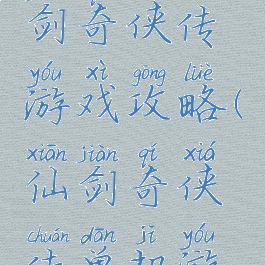 剑奇侠传
yóu xì gōng lüè
游戏攻略(
xiān jiàn qí xiá
仙剑奇侠
chuán dān jī yóu
传单机游